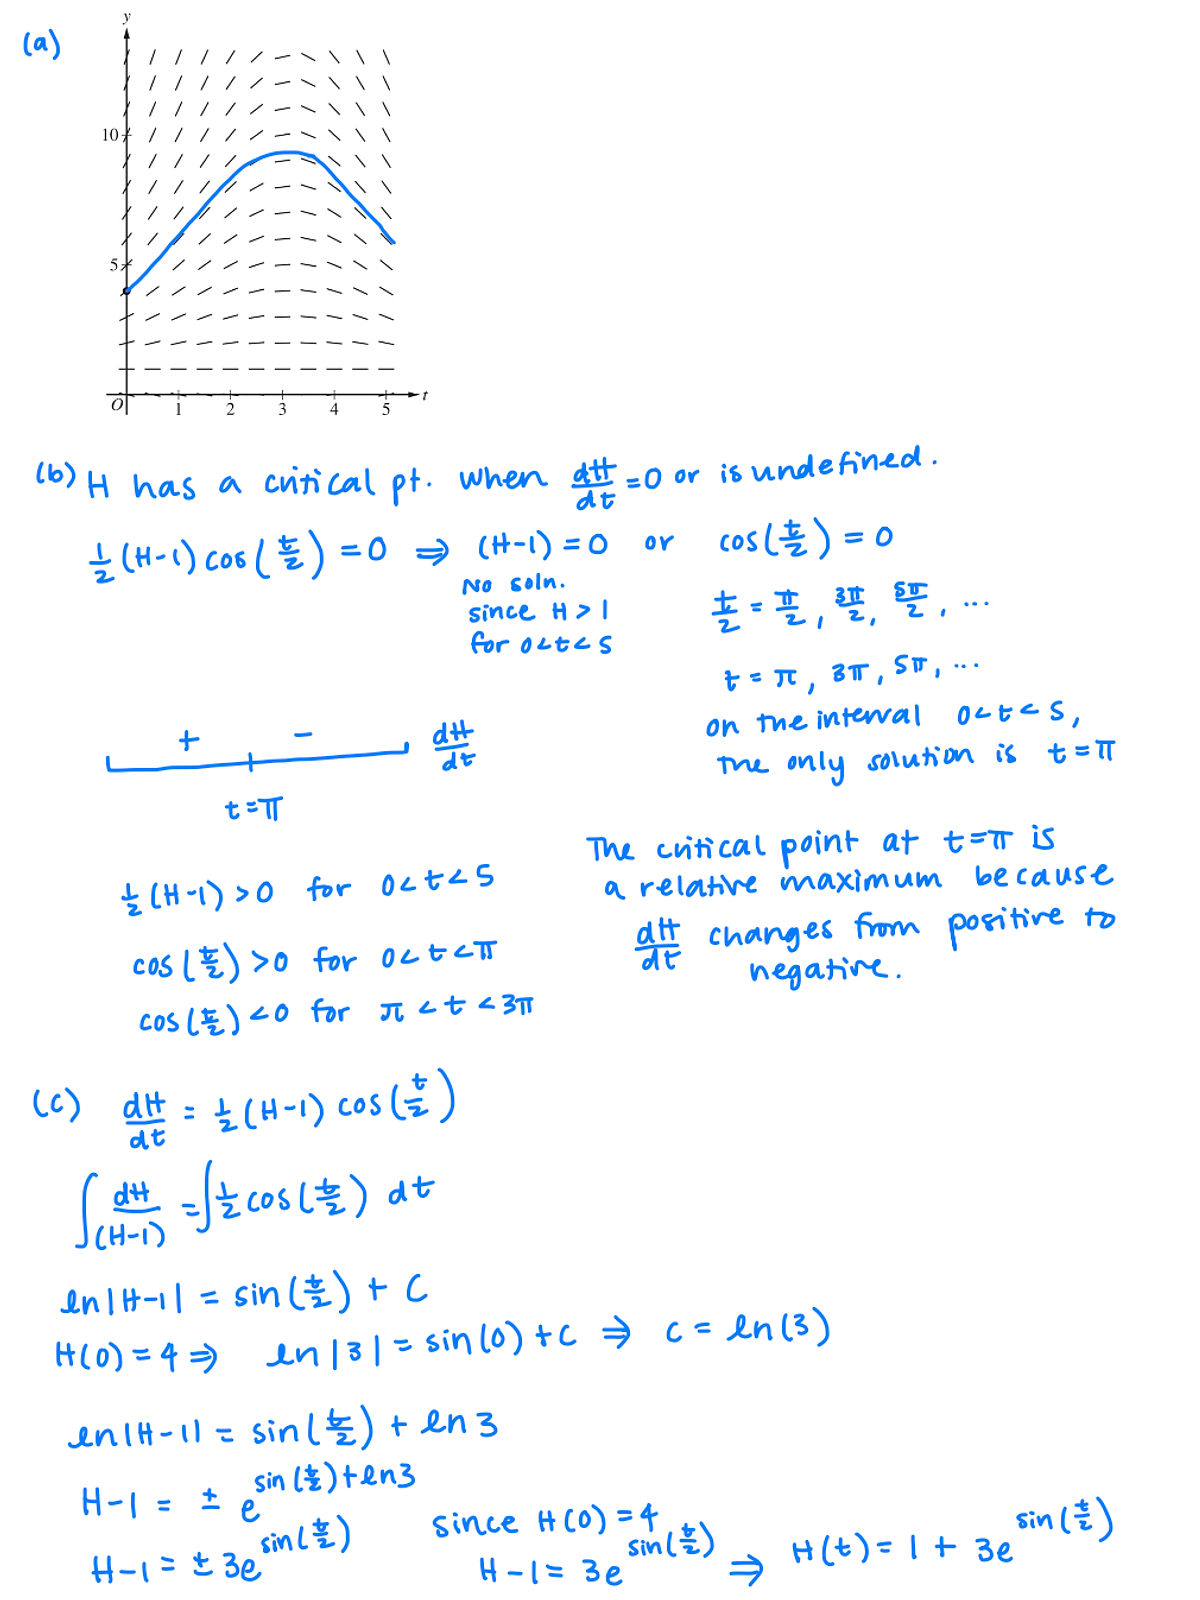 (a)
y
10
5
O 1 2 3 4 5 t
(b) H has a critical pt. when dH/dt = 0 or is undefined.
½(H-1) cos(t/2) = 0 ⇒ (H-1) = 0 or cos(t/2) = 0
No soln.
since H > 1
for 0<t<5
t/2 = π/2, 3π/2, 5π/2, ...
t = π, 3π, 5π, ...
on the interval 0<t<5,
the only solution is t = π
+ - dH/dt
t = π
½(H-1) > 0 for 0<t<5
cos(t/2) > 0 for 0<t<π
cos(t/2) < 0 for π<t<3π
The critical point at t=π is
a relative maximum because
dH/dt changes from positive to
negative.
(c) dH/dt = ½(H-1) cos(t/2)
∫ dH/(H-1) = ∫ ½ cos(t/2) dt
ln|H-1| = sin(t/2) + C
H(0) = 4 ⇒ ln|3| = sin(0) + C ⇒ C = ln(3)
ln|H-1| = sin(t/2) + ln3
H-1 = ± e^(sin(t/2)+ln3)
H-1 = ± 3e^(sin(t/2))
since H(0) = 4
H-1 = 3e^(sin(t/2)) ⇒ H(t) = 1 + 3e^(sin(t/2))